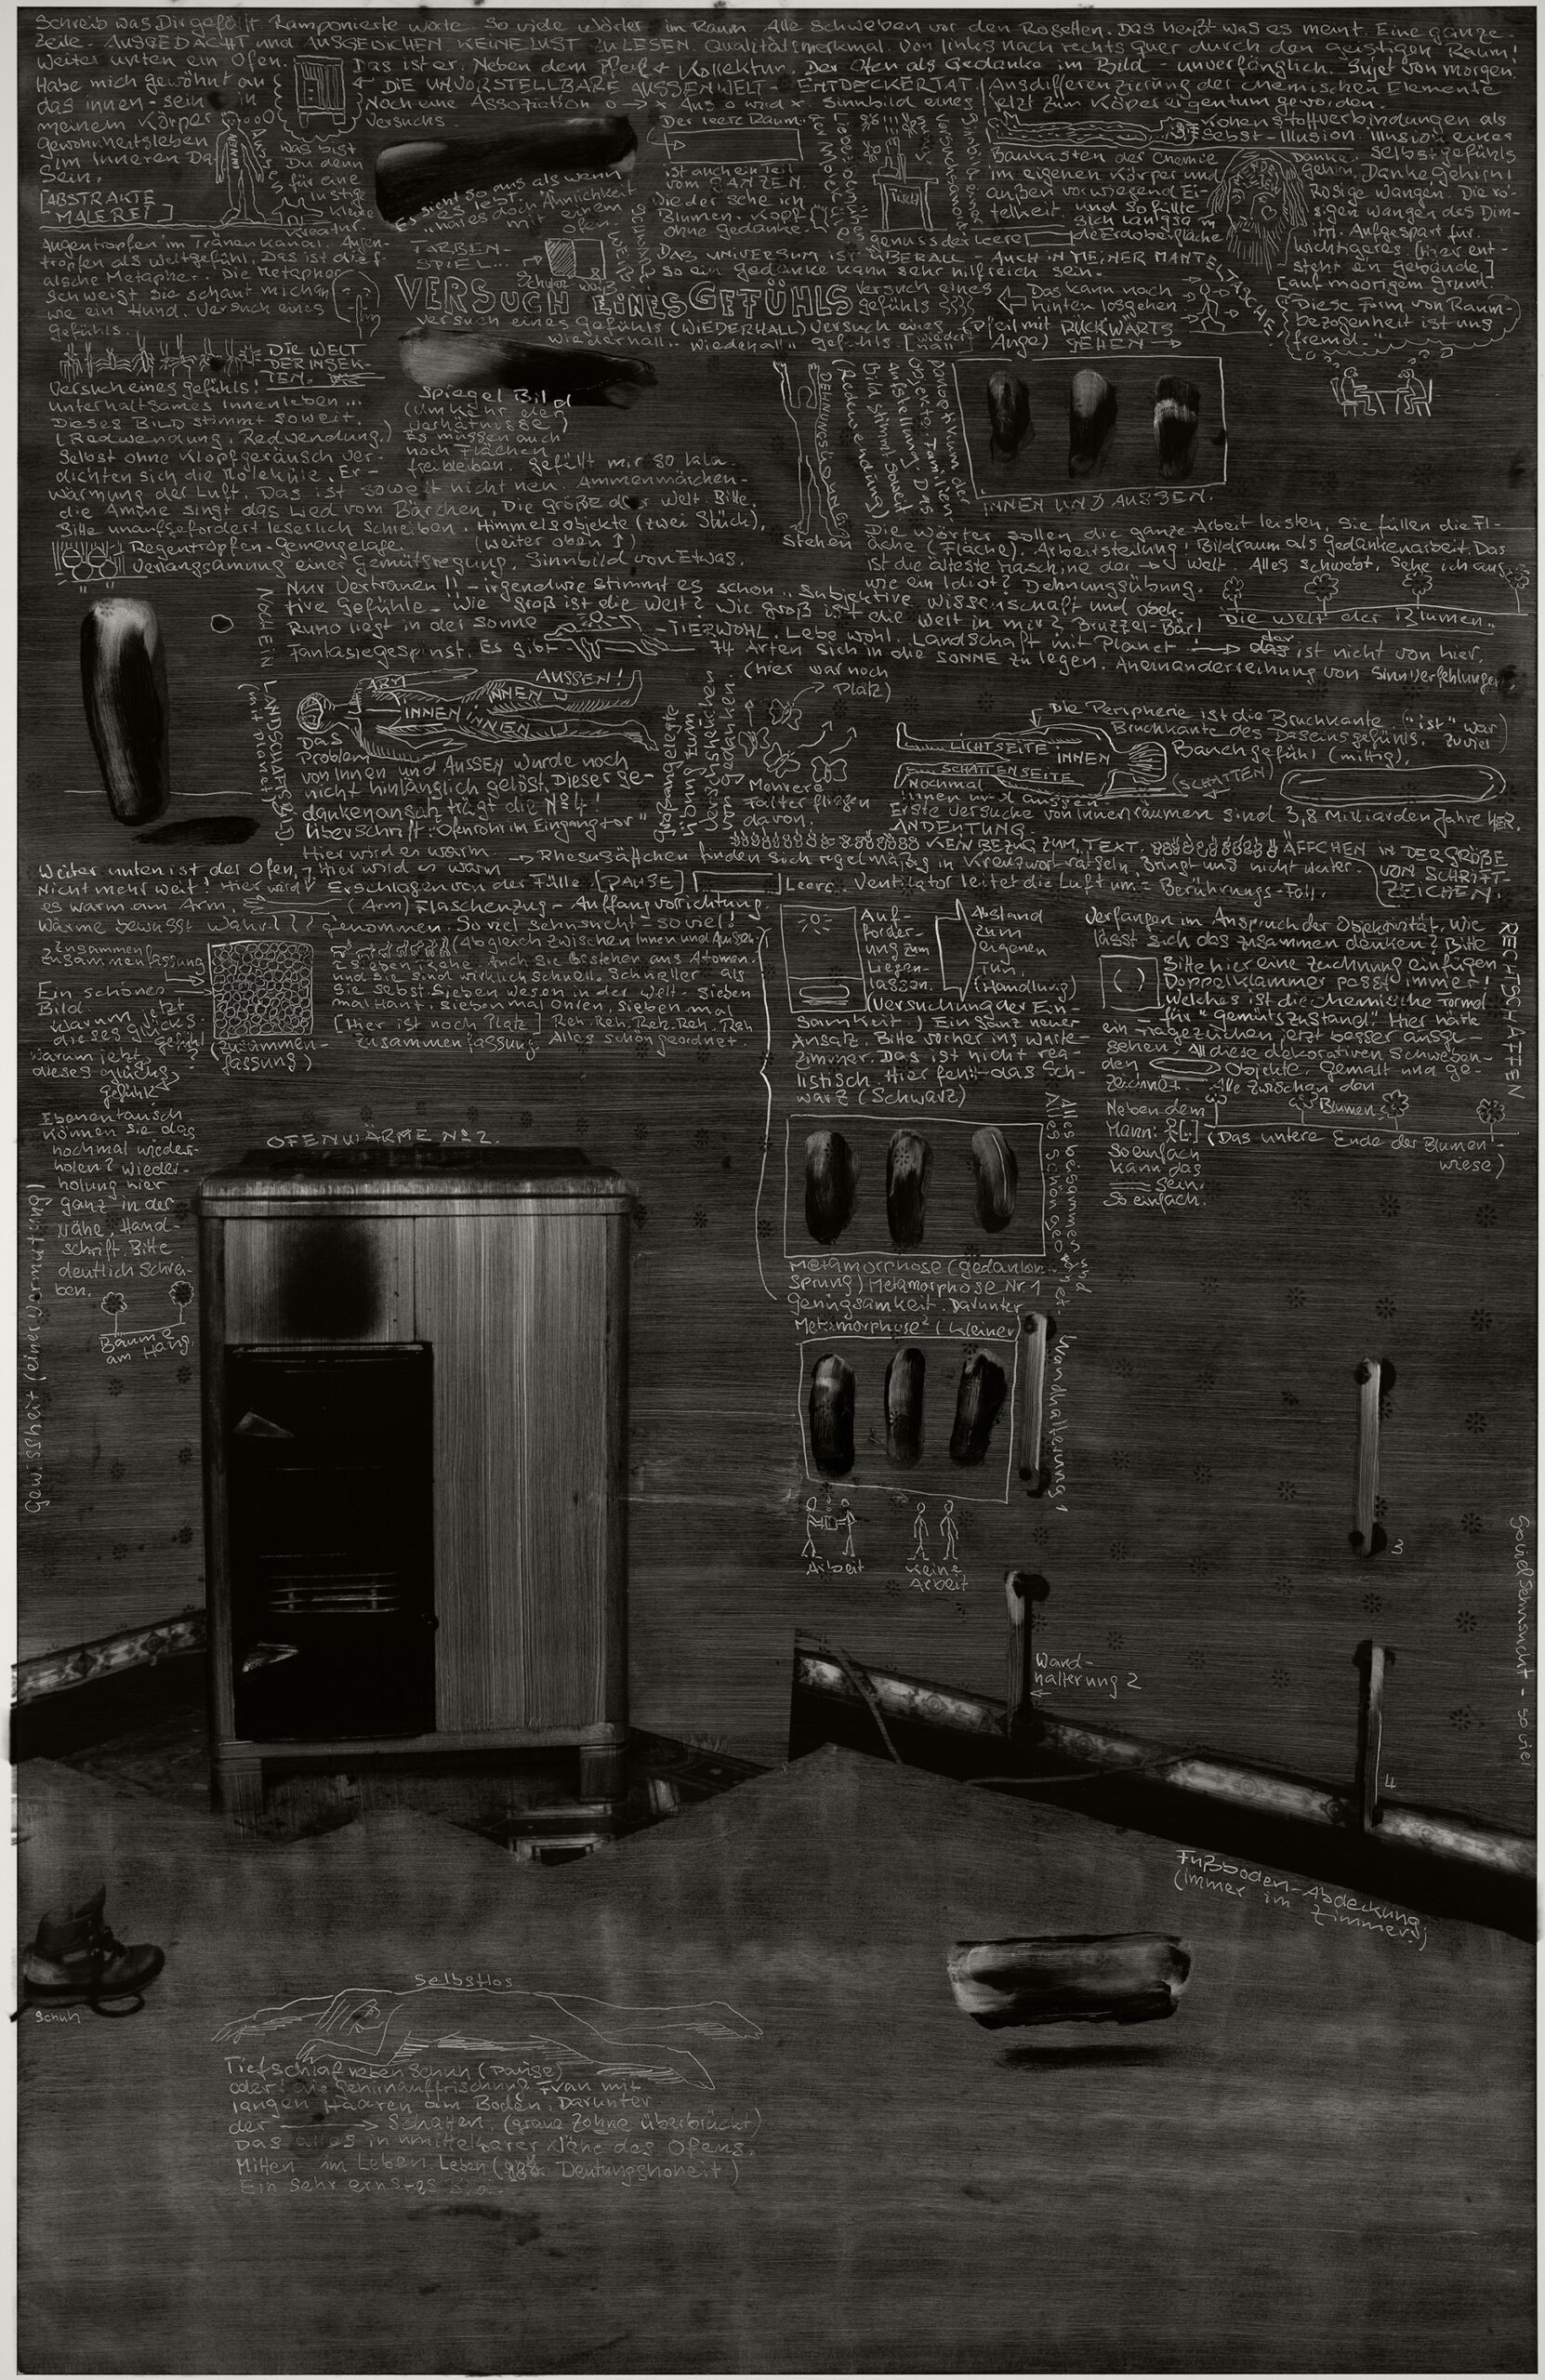 Schreib was Dir gefällt Ramponierte Worte. So viele Wörter im Raum. Alle schweben vor den Rosetten. Das heißt was es meint. Eine ganze
Zeile. AUSGEDACHT und AUSGEWICHEN. KEINE LUST ZU LESEN. Qualitätsmerkmal. Von links nach rechts quer durch den geistigen Raum!
Weiter unten ein Ofen.
Das ist er. Neben dem Pfeil Korrektur Der Ofen als Gedanke im Bild - unverfänglich. Sujet von morgen.
Habe mich gewöhnt an
das innen-sein in
meinem Körper
gewohnheitsleben
im Inneren Da
Sein.
[ABSTRAKTE
MALEREI]
INNEN
Aussen
was bist
Du denn
für eine
lustige
kleine
Kreatur.
← DIE UNVORSTELLBARE AUSSENWELT - ENTDECKERTAT.
Noch eine Assoziation o → x Aus o wird x. Sinnbild eines
Versuchs.
Ausdifferenzierung der chemischen Elemente
Jetzt zum Körpereigentum geworden.
Kohenstoffverbindungen als
Selbst-Illusion. Illusion eines
Selbstgefühls
Es sieht so aus als wenn
es lebt.
"hat es doch Ähnlichkeit
mit einem
Ofen.
FARBEN-
SPIEL...
Schwarz weiß
Der leere Raum.
ist auch ein Teil
vom GANZEN.
Wie der sehe ich
Blumen. Kopf
ohne gedanke.
Tisch
genuss der leere
Baukasten der Chemie
im eigenen Körper und
außen vorwiegend Ei-
telkeit. und so füllte
sich langsam
die Erdoberfläche
Danke
gehirn, Danke gehirn!
Rosige Wangen. Die ro-
sigen Wangen des Dim-
itri. Aufgespart für
wichtigeres. [hier ent-
steht ein gebäude]
[auf moorigem Grund.
Augentropfen im Tränenkanal. Augen-
tropfen als Weltgefühl. Das ist die f-
alsche Metapher. Die Metapher
schweigt sie schaut mich an
wie ein Hund. Versuch eines
gefühls.
DAS UNIVERSUM IST ÜBERALL - AUCH IN MEINER MANTELTASCHE.
so ein gedanke kann sehr hilfreich sein.
VERSUCH EINES GEFÜHLS
Versuch eines
gefühls
Das kann nach
hinten losgehen
Versuch eines gefühls (WIEDERHALL) Versuch eines
wiederhall.. wiederhall.. gefühls [wieder
hall]
(Pfeil mit RÜCKWÄRTS
Auge) GEHEN →
"Diese Form von Raum-
bezogenheit ist uns
fremd."
DIE WELT
DER INSEK-
TEN.
Versuch eines gefühls!
unterhaltsames Innenleben...
Dieses BILD stimmt soweit.
(Redwendung, Redwendung.)
Selbst ohne Klopfgeräusch ver-
dichten sich die Moleküle. Er-
wärmung der Luft. Das ist soweit nicht neu. Ammenmärchen-
die Amme singt das Lied vom Bärchen. Die größe der Welt. Bitte.
Bitte unaufgefordert leserlich schreiben. Himmelsobjekte (zwei Stück),
(weiter oben ↑)
Spiegel Bild
(Umkehr der
Verhältnisse)
Es müssen auch
noch Flächen
freibleiben. Gefällt mir so lala.
Regentropfen-Gemengelage.
Verlangsamung einer Gemütsregung. Sinnbild von Etwas.
DEHNUNGSÜBUNG
Stehen
Panoptikum der
Objekte. Familien-
Aufstellung. Das
Bild stimmt soweit
(Redewendung)
INNEN UND AUSSEN.
Die Wörter sollen die ganze Arbeit leisten. Sie füllen die Fl-
äche (Fläche). Arbeitsteilung! Bildraum als Gedankenarbeit. Das
ist die älteste Maschine der → Welt. Alles schwebt. Sehe ich aus
wie ein Idiot? Dehnungsübung.
Nur Vertrauen!! - irgendwie stimmt es schon.. Subjektive Wissenschaft und objek-
tive Gefühle - Wie groß ist die Welt? Wie groß ist die Welt in mir? Bruzzel-Bär!
Rumo liegt in der Sonne - TIERWOHL. Lebe wohl. Landschaft mit Planet → das der ist nicht von hier.
Fantasiegespinst. Es gibt 74 Arten sich in die SONNE zu legen. Aneinanderreihung von Sinnverfehlungen.
Die Welt der Blumen..
NOCH EIN LANDSCHAFTSBILD.
(mit Planet)
ARM
AUSSEN!
INNEN
INNEN INNEN
Das
Problem
von Innen und AUSSEN wurde noch
nicht hinlänglich gelöst. Dieser ge-
dankenansatz trägt die Nº 4!
Überschrift: "Ofenrohr im Eingangtor"
Hier wird es warm
Großangelegte
Übung zum
Verscheuchen
von gedanken.
(hier war noch
Platz)
Mehrere
Falter fliegen
davon.
Die Peripherie ist die Bruchkante. ("ist" war
Bruchkante des Daseinsgefühls. zuviel)
LICHTSEITE INNEN
SCHATTENSEITE
Bauchgefühl (mittig).
(SCHATTEN)
Nochmal
innen und aussen.
Erste Versuche von Innenräumen sind 3,8 Milliarden Jahre HER.
ANDEUTUNG.
KEIN BEZUG ZUM TEXT. ÄFFCHEN IN DER GRÖßE
VON SCHRIFT-
ZEICHEN.
Weiter unten ist der Ofen, hier wird es warm → Rhesusäffchen finden sich regelmäßig in Kreuzworträtseln. Bringt uns nicht weiter.
Nicht mehr weit! Hier wird Erschlagen von der Fülle. [PAUSE] Leere. Ventilator leitet die Luft um = Berührungs-Fail.
es warm am Arm. (Arm) Flaschenzug - Auffangvorrichtung.
Wärme bewusst wahr genommen. So viel Sehnsucht - so viel!
Zusammenf
Zusammenfassung
Ein schönes
Bild.
Warum jetzt
dieses glücks-
gefühl
Warum jetzt
dieses glücks
gefühl
(Zusammen-
fassung)
(Abgleich zwischen Innen und Aussen
Sieben Rehe. Auch sie bestehen aus Atomen.
und sie sind wirklich schnell. Schneller als
sie selbst. Sieben Wesen in der Welt - Sieben
mal Haut, sieben mal Ohren, Sieben mal
[Hier ist noch Platz] Reh. Reh. Reh. Reh. Reh
Zusammenfassung. Alles schön geordnet.
Auf-
forder-
ung zum
Liegen-
lassen.
Abstand
zum
eigenen
Tun.
(Handlung)
(Versuchung der Ein-
samkeit.) Ein ganz neuer
Ansatz. Bitte vorher ins Warte-
zimmer. Das ist nicht rea-
listisch. Hier fehlt das Sch-
warz (Schwarz)
Verfangen im Anspruch der Objektivität. Wie
lässt sich das zusammen denken? Bitte
Bitte hier eine Zeichnung einfügen.
Doppelklammer passt immer!
Welches ist die chemische Formel
für "gemütszustand". Hier hätte
ein Fragezeichen jetzt besser ausge-
sehen. All diese dekorativen schweben-
den Objekte. Gemalt und ge-
zeichnet. Alle zwischen den
Blumen.
RECHTSCHAFFEN
Neben dem
Mann: [..]
So einfach
kann das
sein.
So einfach.
(Das untere Ende der Blumen-
wiese)
Ebenentausch
können Sie das
nochmal wieder-
holen? Wieder-
holung hier
ganz in der
Nähe. Hand-
schrift. Bitte
deutlich schrei-
ben.
Bäume
am Hang.
Gewissheit (einer Vermutung)
OFENWÄRME Nº 2.
Alles beisammen und
Alles schön geordnet.
Metamorphose (gedanken-
sprung) Metamorphose Nr. 1
Genügsamkeit. Darunter
Metamorphose² (kleiner)
Wandhalterung 1
Arbeit
Keine
Arbeit
3
Wand-
halterung 2
←
4
so viel Sehnsucht - so viel
Fußboden-Abdeckung
(immer im
Zimmer!)
Schuh
Selbstlos
Tiefschlaf neben Schuh (Pause)
oder: die Gehirnauffrischung. Frau mit
langen Haaren am Boden. Darunter
der → Schatten. (graue Zohne überbrückt)
Das alles in unmittelbarer Nähe des Ofens.
Mitten im Leben. Leben (ggü. Deutungshoheit)
Ein sehr ernstes